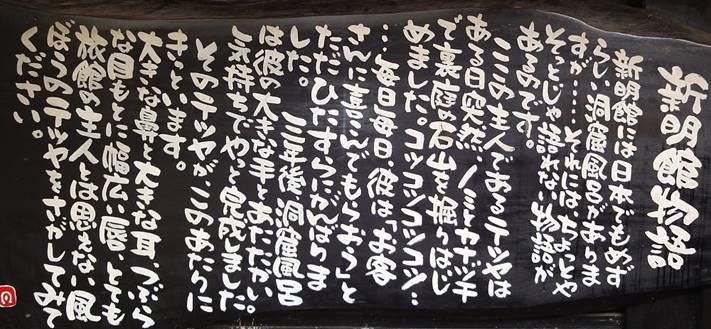 新明館物語
新明館には日本でもめず
らしい洞窟風呂があります
すが…それには、ちょっとや
そっとじゃ語れない物語が
あるのです。
ここの主人であるテツヤは
ある日突然、ノミとカナヅチ
で裏庭の石山を掘りはじ
めました。コツンコツンコツン‥
‥毎日毎日、彼は「お客
さんに喜こんでもらおう」と
ただひたすらにがんばりま
した。三年後、洞窟風呂
は彼の大きな手とあたたかい
気持ちで、やっと完成しました。
そのテツヤがこのあたりに
きっといます。
大きな鼻と大きな耳、つぶら
な目もとに幅広い唇、とても
旅館の主人とは思えない風
ぼうのテツヤをさがしてみて
ください。